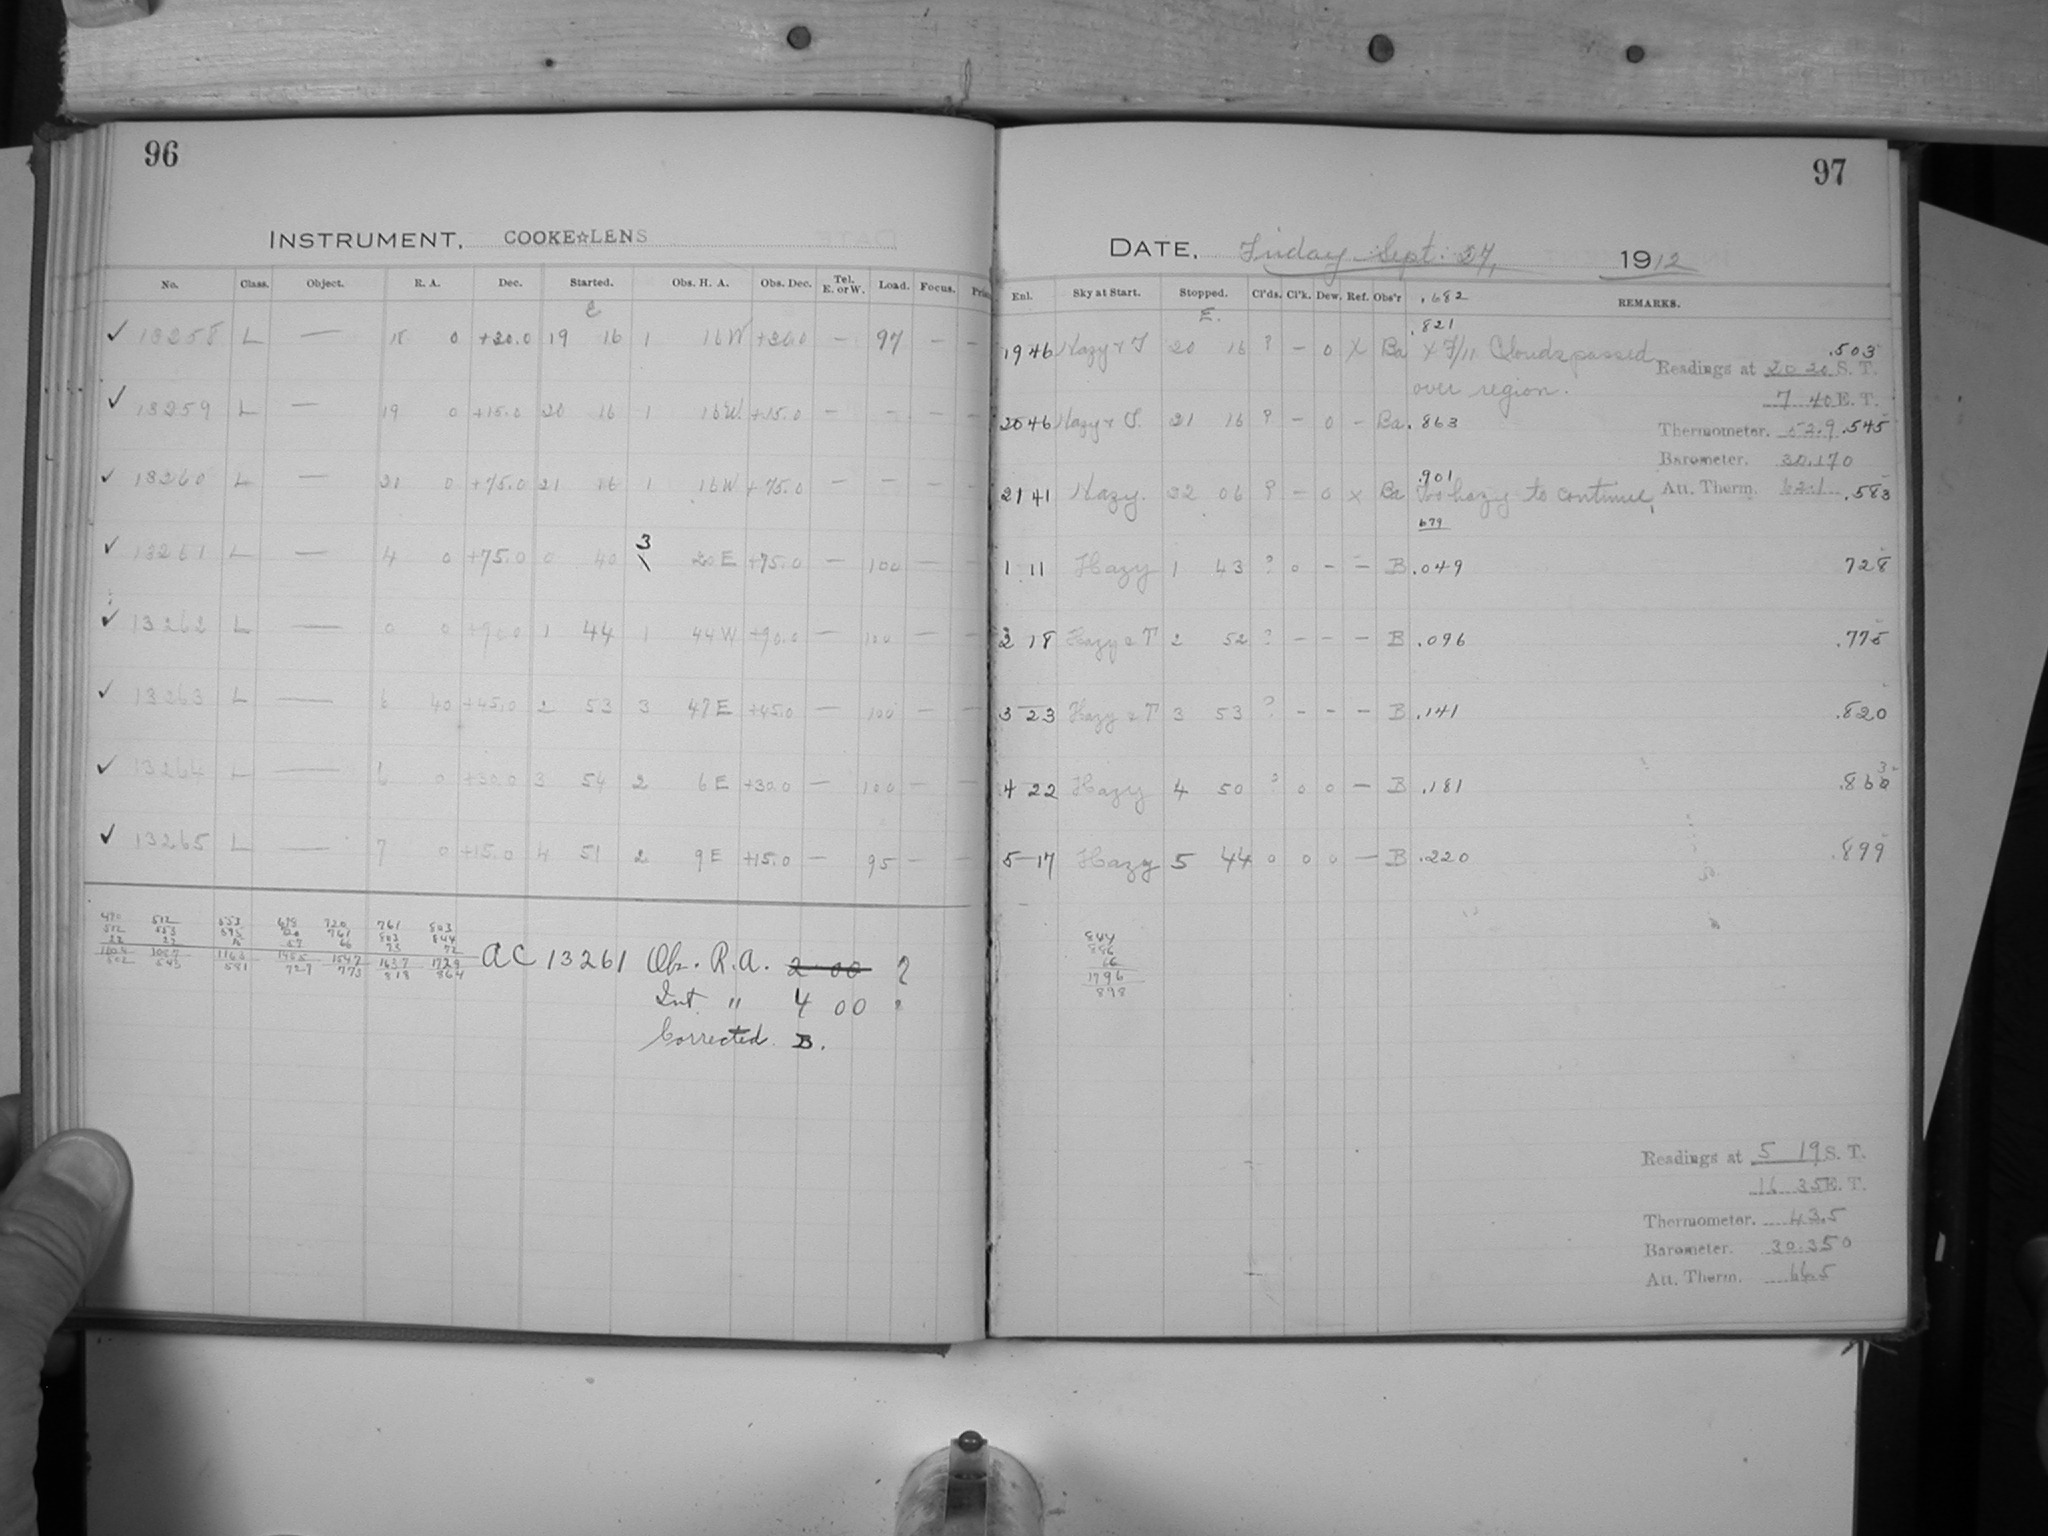 96
INSTRUMENT, COOKE☆LENS
No. Class. Object. R. A. Dec. Started. Obs. H. A. Obs. Dec. Tel. E. or W. Load. Focus.
E
✓ 13258 L — 18 0 +30.0 19 16 1 16 W +30.0 — 97 — —
✓ 13259 L — 19 0 +15.0 20 16 1 16 W +15.0 — — — —
✓ 13260 L — 21 0 +75.0 21 16 1 16 W +75.0 — — — —
✓ 13261 L — 4 0 +75.0 0 40 3 20 E +75.0 — 100 — —
✓ 13262 L — 0 0 +90.0 1 44 1 44 W +90.0 — 100 — —
✓ 13263 L — 6 40 +45.0 2 53 3 47 E +45.0 — 100 — —
✓ 13264 L — 6 0 +30.0 3 54 2 6 E +30.0 — 100 — —
✓ 13265 L — 7 0 +15.0 4 51 2 9 E +15.0 — 95 — —
490 512 553 678 720 761 803
512 553 595 720 761 803 844
1087 1163 1455 1547 1637 1729
502 543 581 727 773 818 864
AC 13261 Obs. R.A. 2 00 ?
Int " 4 00 ?
Corrected B.
97
DATE, Friday Sept. 27, 1912
Enl. Sky at Start. Stopped. Cl'ds. Cl'k. Dew. Ref. Obs'r .682 REMARKS.
E. .821
19 46 Hazy & T 20 16 ? — 0 X Ba X F/11 Clouds passed .503
over region.
20 46 Hazy & T. 21 16 ? — 0 — Ba .863 .545
.901
21 41 Hazy. 22 06 ? — 0 X Ba Too hazy to continue, .583
679
1 11 Hazy 1 43 ? 0 — — B .049 728
2 18 Hazy & T 2 52 ? — — — B .096 .775
3 23 Hazy & T 3 53 ? — — — B .141 .820
4 22 Hazy 4 50 ? 0 0 — B .181 .860 3
5 17 Hazy 5 44 0 0 0 — B .220 .899
Readings at 20 20 S. T.
7 40 E. T.
Thermometer. 52.9
Barometer. 30.170
Att. Therm. 62.1
844
886
66
1796
898
Readings at 5 19 S. T.
16 35 E. T.
Thermometer. 43.5
Barometer. 30.350
Att. Therm. 66.5